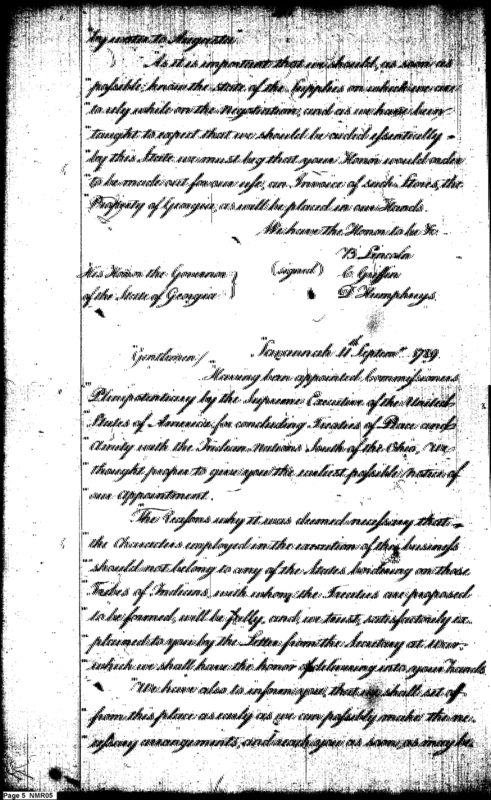 "by water to Augusta"
"As it is important that we should, as soon as
"possible, know the state of the Supplies on which we are
"to rely while on the negotiation, and as we have been
"taught to expect that we should be aided essentially
"by this State we must beg that your Honor would order
"to be made out for our use, an Invoice of such Stores, the
"Property of Georgia, as will be placed in our Hands.
We have the Honor to be &c.
B. Lincoln
His Honor the Governor } (signed) C. Griffin
of the State of Georgia D. Humphreys.
Savannah 11th Septemr. 1789.
"Gentlemen/
"Having been appointed Commissioners
"Plenipotentiary by the Supreme Executive of the United
"States of America for concluding Treaties of Peace and
"Amity with the Indian Nations South of the Ohio, We
"thought proper to give you the earliest possible notice of
"our appointment.
"The Reasons why it was deemed necessary that
"the Characters employed in the execution of this business
"should not belong to any of the States bordering on those
"Tribes of Indians, with whom the Treaties are proposed
"to be formed, will be fully, and, we trust, satisfactorily ex-
"plained to you by the Letter from the Secretary at War.
"which we shall have the honor of delivering into your hands.
"We have also to inform you, that we shall set off
"from this place as early as we can possibly make the ne-
"cessary arrangements, and reach you as soon, as may be
Page 5 NMR05